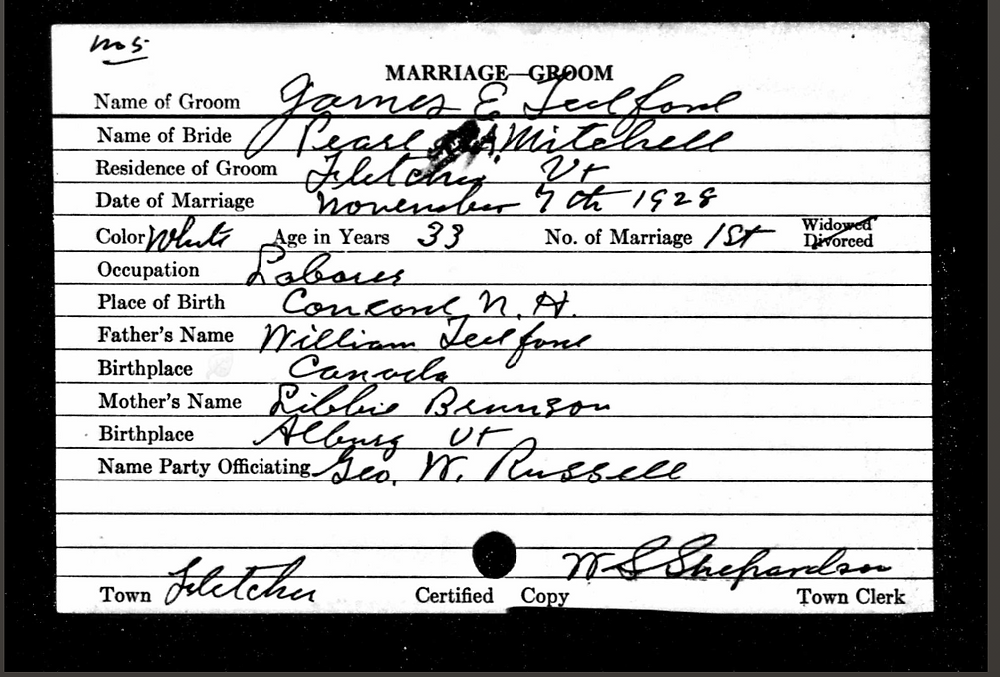 No 5
MARRIAGE—GROOM
Name of Groom James E Tedford
Name of Bride Pearl A. Mitchell
Residence of Groom Fletcher Vt
Date of Marriage November 7th 1928
Color White Age in Years 33 No. of Marriage 1st Widowed
Divorced
Occupation Laborer
Place of Birth Concord N. H.
Father's Name William Tedford
Birthplace Canada
Mother's Name Libbie
Birthplace Alburg Vt
Name Party Officiating Geo. W. Russell
W S Shepardson
Town Fletcher Certified Copy Town Clerk